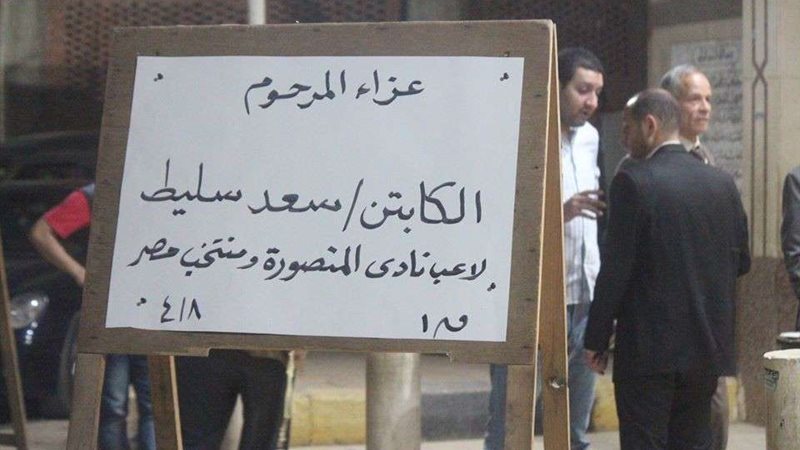 عزاء المرحوم
الكابتن/سعد سليط
لاعب نادى المنصورة ومنتخب مصر
ق ١ ٤/٨